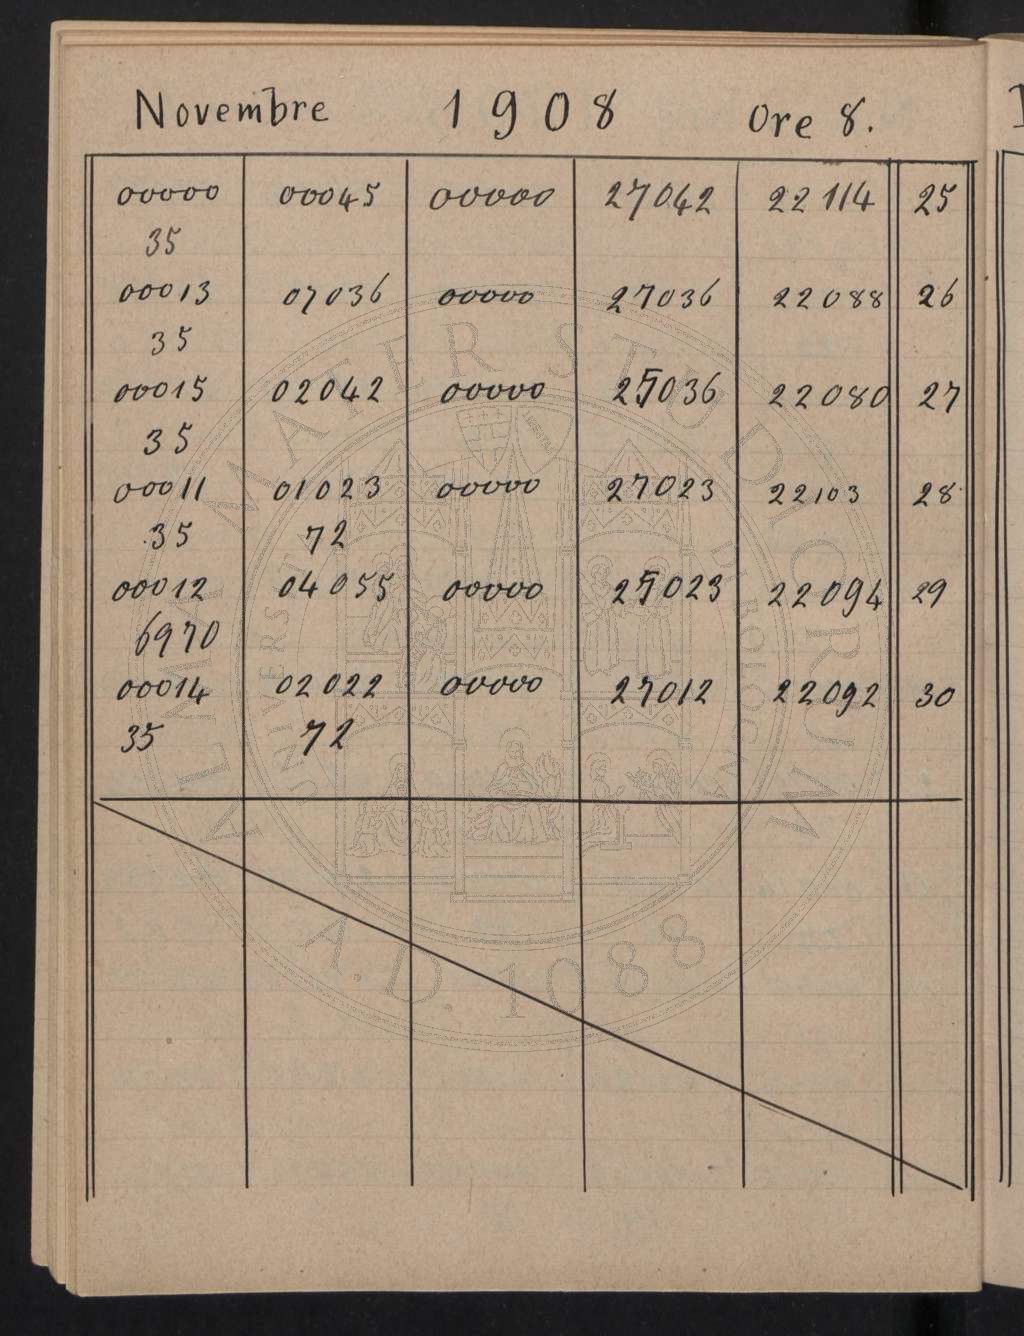 Novembre 1908 Ore 8.
00000 00045 00000 27042 22114 25
35
00013 07036 00000 27036 22088 26
35
00015 02042 00000 25036 22080 27
35
00011 01023 00000 27023 22103 28
35 72
00012 04055 00000 25023 22094 29
6970
00014 02022 00000 27012 22092 30
35 72
ALMA MATER STUDIORUM
UNIVERSITÀ DI BOLOGNA
A.D. 1088